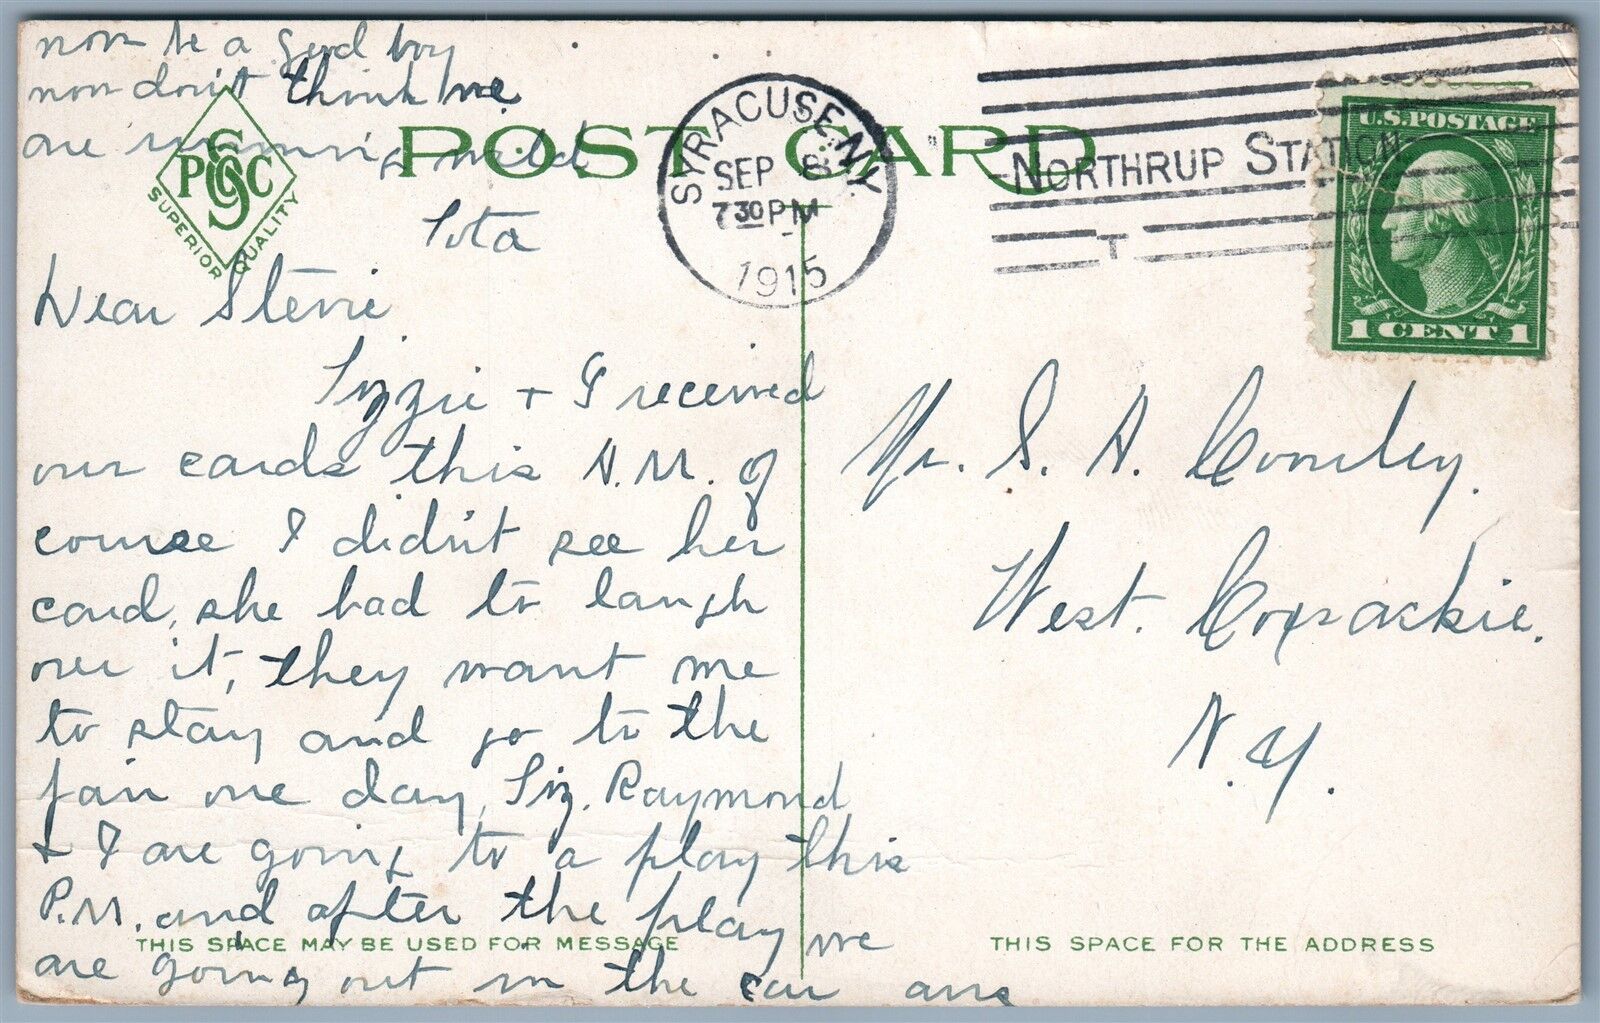 now be a good boy
now don't think we
are running wild
Lota
POST CARD
PSCCO
SUPERIOR QUALITY
SYRACUSE, N.Y.
SEP 8
7 30 PM
1915
NORTHRUP STATION
T
U.S. POSTAGE
1 CENT 1
Dear Stevie
Lizzie + I received
our cards this A.M. of
course I didn't see her
card, she had to laugh
over it, they want me
to stay and go to the
fair one day, Liz. Raymond
& I are going to a play this
P.M. and after the play we
are going out in the car
THIS SPACE MAY BE USED FOR MESSAGE
Mr. S. A. Comley.
West. Coxsackie.
N.Y.
THIS SPACE FOR THE ADDRESS